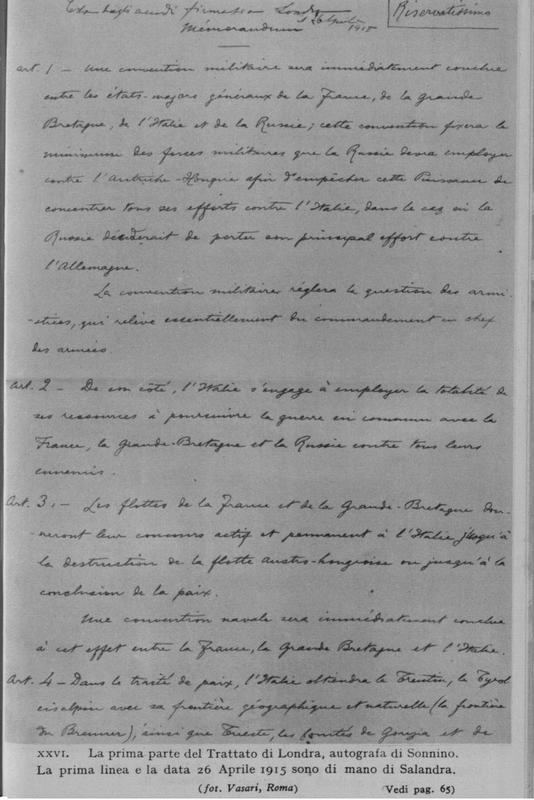 Riservatissimo
Londra
26 Aprile
1915
Mémorandum
art. 1 — Une convention militaire sera immédiatement conclue
entre les états-majors généraux de la France, de la Grande
Bretagne, de l'Italie et de la Russie; cette convention fixera le
minimum des forces militaires que la Russie devra employer
contre l'Autriche-Hongrie afin d'empêcher cette Puissance de
concentrer tous ses efforts contre l'Italie, dans le cas où la
Russie déciderait de porter son principal effort contre
l'Allemagne.
La convention militaire règlera la question des armi-
-stices, qui relève essentiellement du commandement en chef
des armées.
art. 2 — De son côté, l'Italie s'engage à employer la totalité de
ses ressources à poursuivre la guerre en commun avec la
France, la Grande-Bretagne et la Russie contre tous leurs
ennemis.
Art. 3. — Les flottes de la France et de la Grande-Bretagne don-
-neront leur concours actif et permanent à l'Italie jusqu'à
la destruction de la flotte austro-hongroise ou jusqu'à la
conclusion de la paix.
Une convention navale sera immédiatement conclue
à cet effet entre la France, la Grande Bretagne et l'Italie.
Art. 4 — Dans le traité de paix, l'Italie obtiendra le Trentin, le Tyrol
cisalpin avec sa frontière géographique et naturelle (la frontière
du Brenner), ainsi que Trieste, les comtés de Gorizia et de
XXVI. La prima parte del Trattato di Londra, autografa di Sonnino.
La prima linea e la data 26 Aprile 1915 sono di mano di Salandra.
(fot. Vasari, Roma) (Vedi pag. 65)